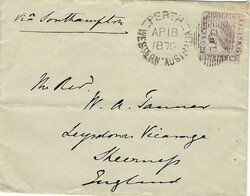 via Southampton
PERTH
AP 18
1879
WESTERN AUSTRALIA
The Revd.
W. A. Tanner
Leysdown Vicarage
Sheerness
England